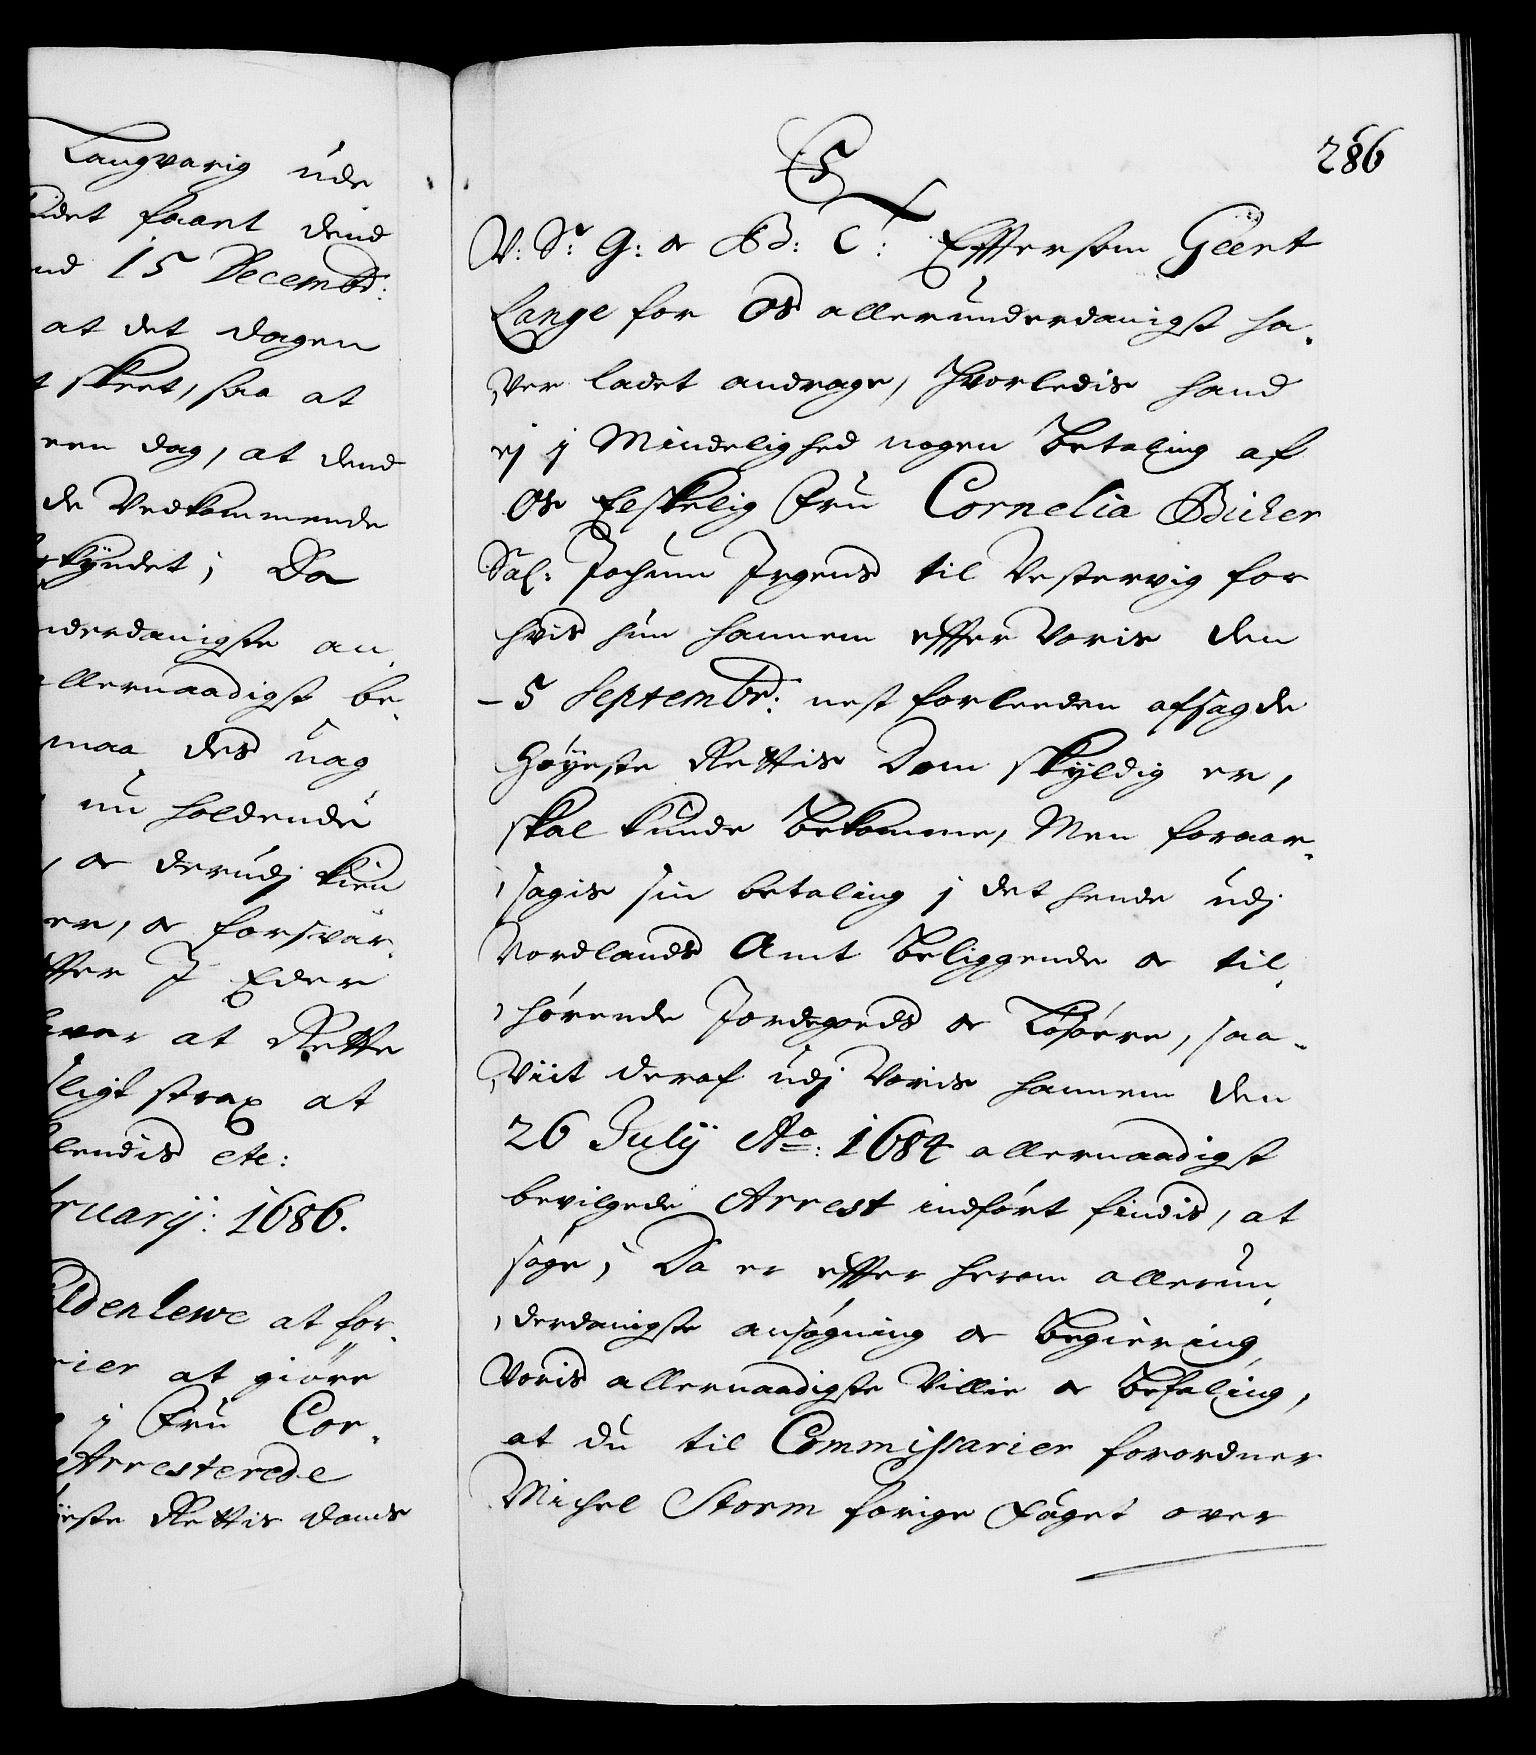 Langvarig ude
det faaet dend
nd 15 Decembr:
at det dagen
t skeet, saa at
een dag, at dend
de Vedkommende
kyndet; Da
nderdanigste an,
llernaadigst be,
maa des uag
nu holdende
, og derudj kien
er, og forsvar,
ffter J Eder
hver at Rette
ligt strax at
lendis etc:
bruarij: 1686.
ldenlewe at for,
rier at giöre
j Fru Cor,
Arresterede
ieste Rettis doms
286
C 5
V: Sr G: og B: C: Efftersom Geert
Lange for Os allerunderdanigst ha,
ver ladet andrage, hvorledis hand
ej j Mindelighed nogen Betaling af
Os Elskelig Fru Cornelia Bicker
Sal: Jochum Jrgens til Vestervig for
hvis hun hannem effter Voris den
5 Septembr: nest forleeden afsagde
Höyeste Rettis Dom skyldig er,
skal kunde bekomme, Men foraar,
sagis sin betaling j det hende udj
Nordlands Amt Beliggende og til,
hörende Jordegods og Lösöere, saa,
Viit deraf udj Voris hannem den
26 Julij Ao: 1684 allernaadigst
bevilgede Arrest indfört findis, at
söge; Da er effter herom allerun,
derdanigste ansögning og begiering
Voris allernaadigste Villie og Befaling,
at du til Commissarier forordner
Michel Storm forige Foget over